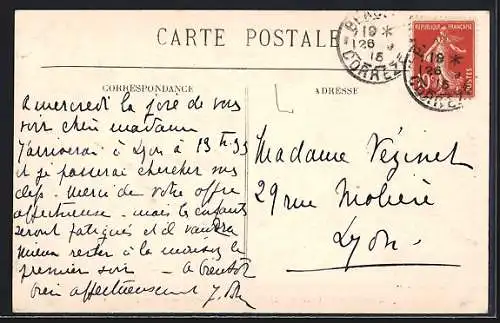 CARTE POSTALE
CORRESPONDANCE
ADRESSE
RÉPUBLIQUE FRANÇAISE
POSTES
19 *
26 9
15
CORRÈZE
19 *
26 9
15
CORRÈZE
A mercredi la joie de vous
voir chère madame
J'arriverai à Lyon à 13 h. 35
et je passerai chercher vos
clefs. Merci de votre offre
affectueuse - mais les enfants
seront fatigués et il vaudra
mieux rester à la maison le
premier soir - A bientôt
bien affectueusement
Madame Vézinet
29 rue Molière
Lyon.